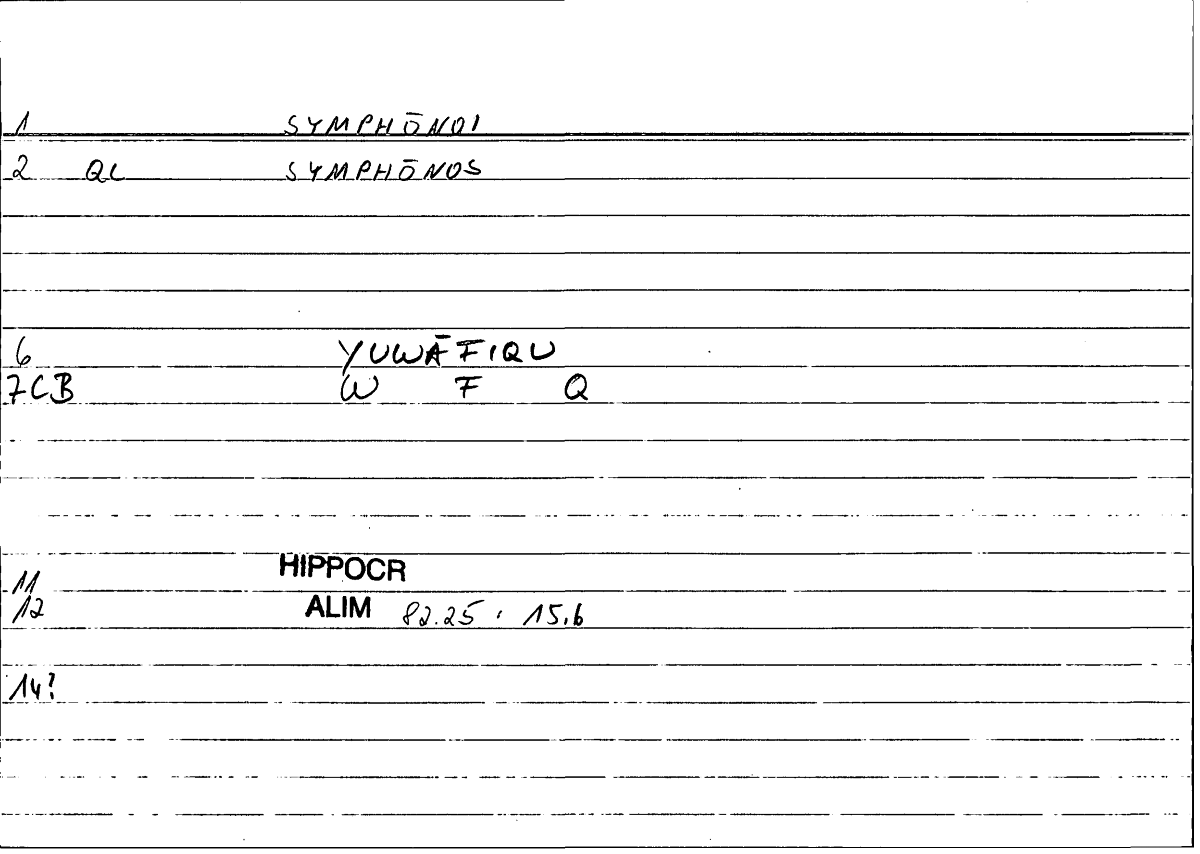 1 SYMPHŌNOI
2 QL SYMPHŌNOS
6 YUWĀFIQU
7CB W F Q
11 HIPPOCR
12 ALIM 82.25 , 15,6
14?